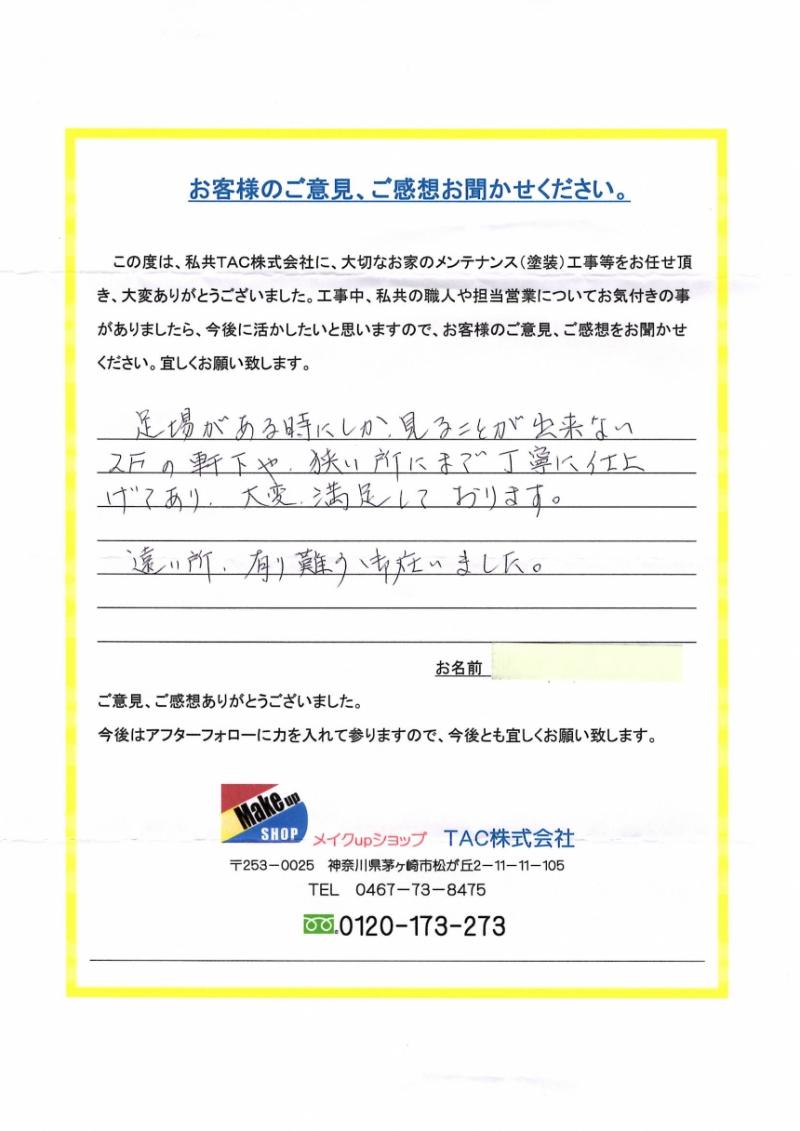 お客様のご意見、ご感想お聞かせください。
この度は、私共TAC株式会社に、大切なお家のメンテナンス(塗装)工事等をお任せ頂
き、大変ありがとうございました。工事中、私共の職人や担当営業についてお気付きの事
がありましたら、今後に活かしたいと思いますので、お客様のご意見、ご感想をお聞かせ
ください。宜しくお願い致します。
足場がある時にしか、見ることが出来ない
2Fの軒下や、狭い所にまで丁寧に仕上
げてあり、大変、満足しております。
遠い所、有り難う御在いました。
お名前
ご意見、ご感想ありがとうございました。
今後はアフターフォローに力を入れて参りますので、今後とも宜しくお願い致します。
Make up
SHOP
メイクupショップ TAC株式会社
〒253-0025 神奈川県茅ヶ崎市松が丘2-11-11-105
TEL 0467-73-8475
0120-173-273